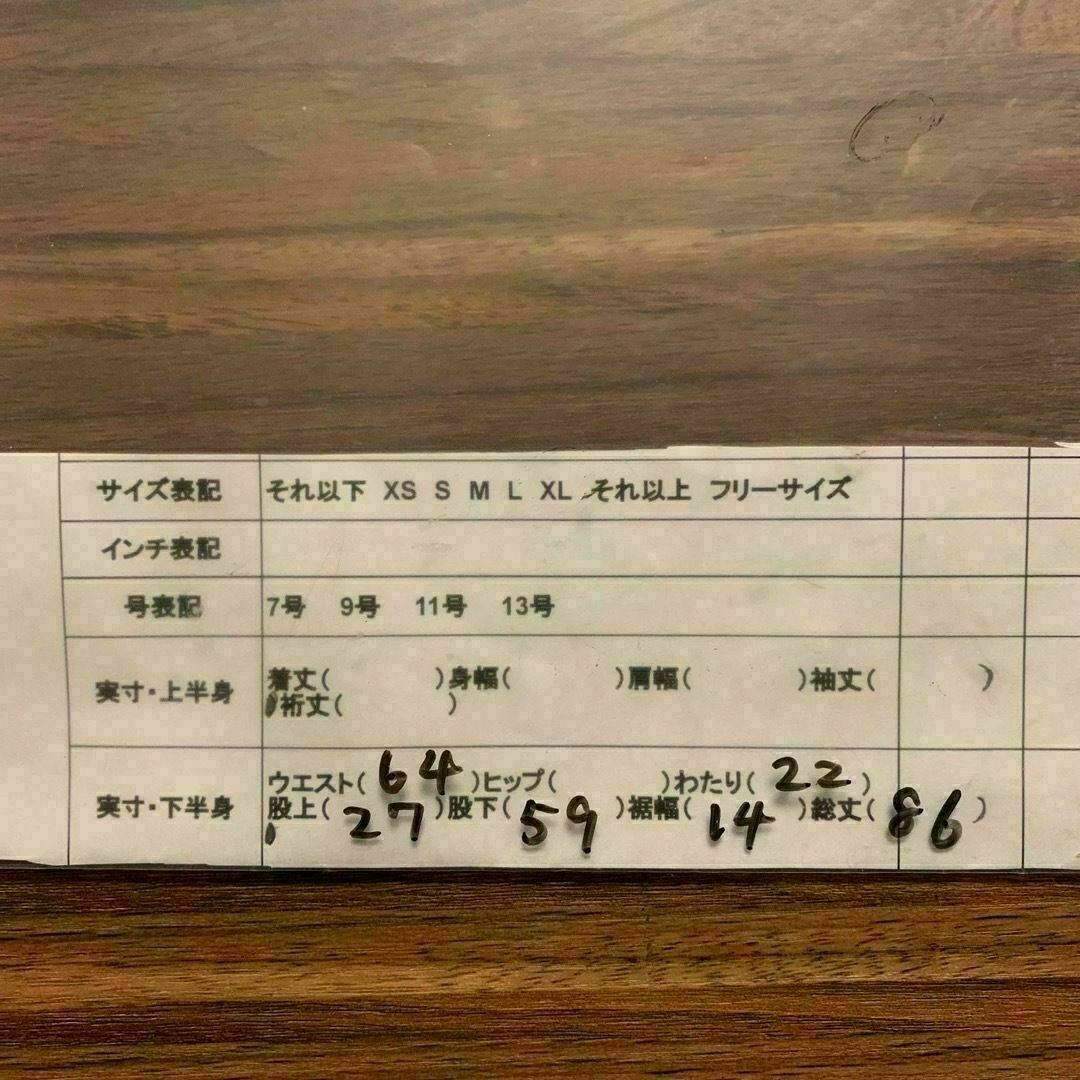 サイズ表記 それ以下 XS S M L XL それ以上 フリーサイズ
インチ表記
号表記 7号 9号 11号 13号
実寸・上半身 着丈( )身幅( )肩幅( )袖丈( )
裄丈( )
実寸・下半身 ウエスト(64)ヒップ( )わたり(22)
股上(27)股下(59)裾幅(14)総丈(86)